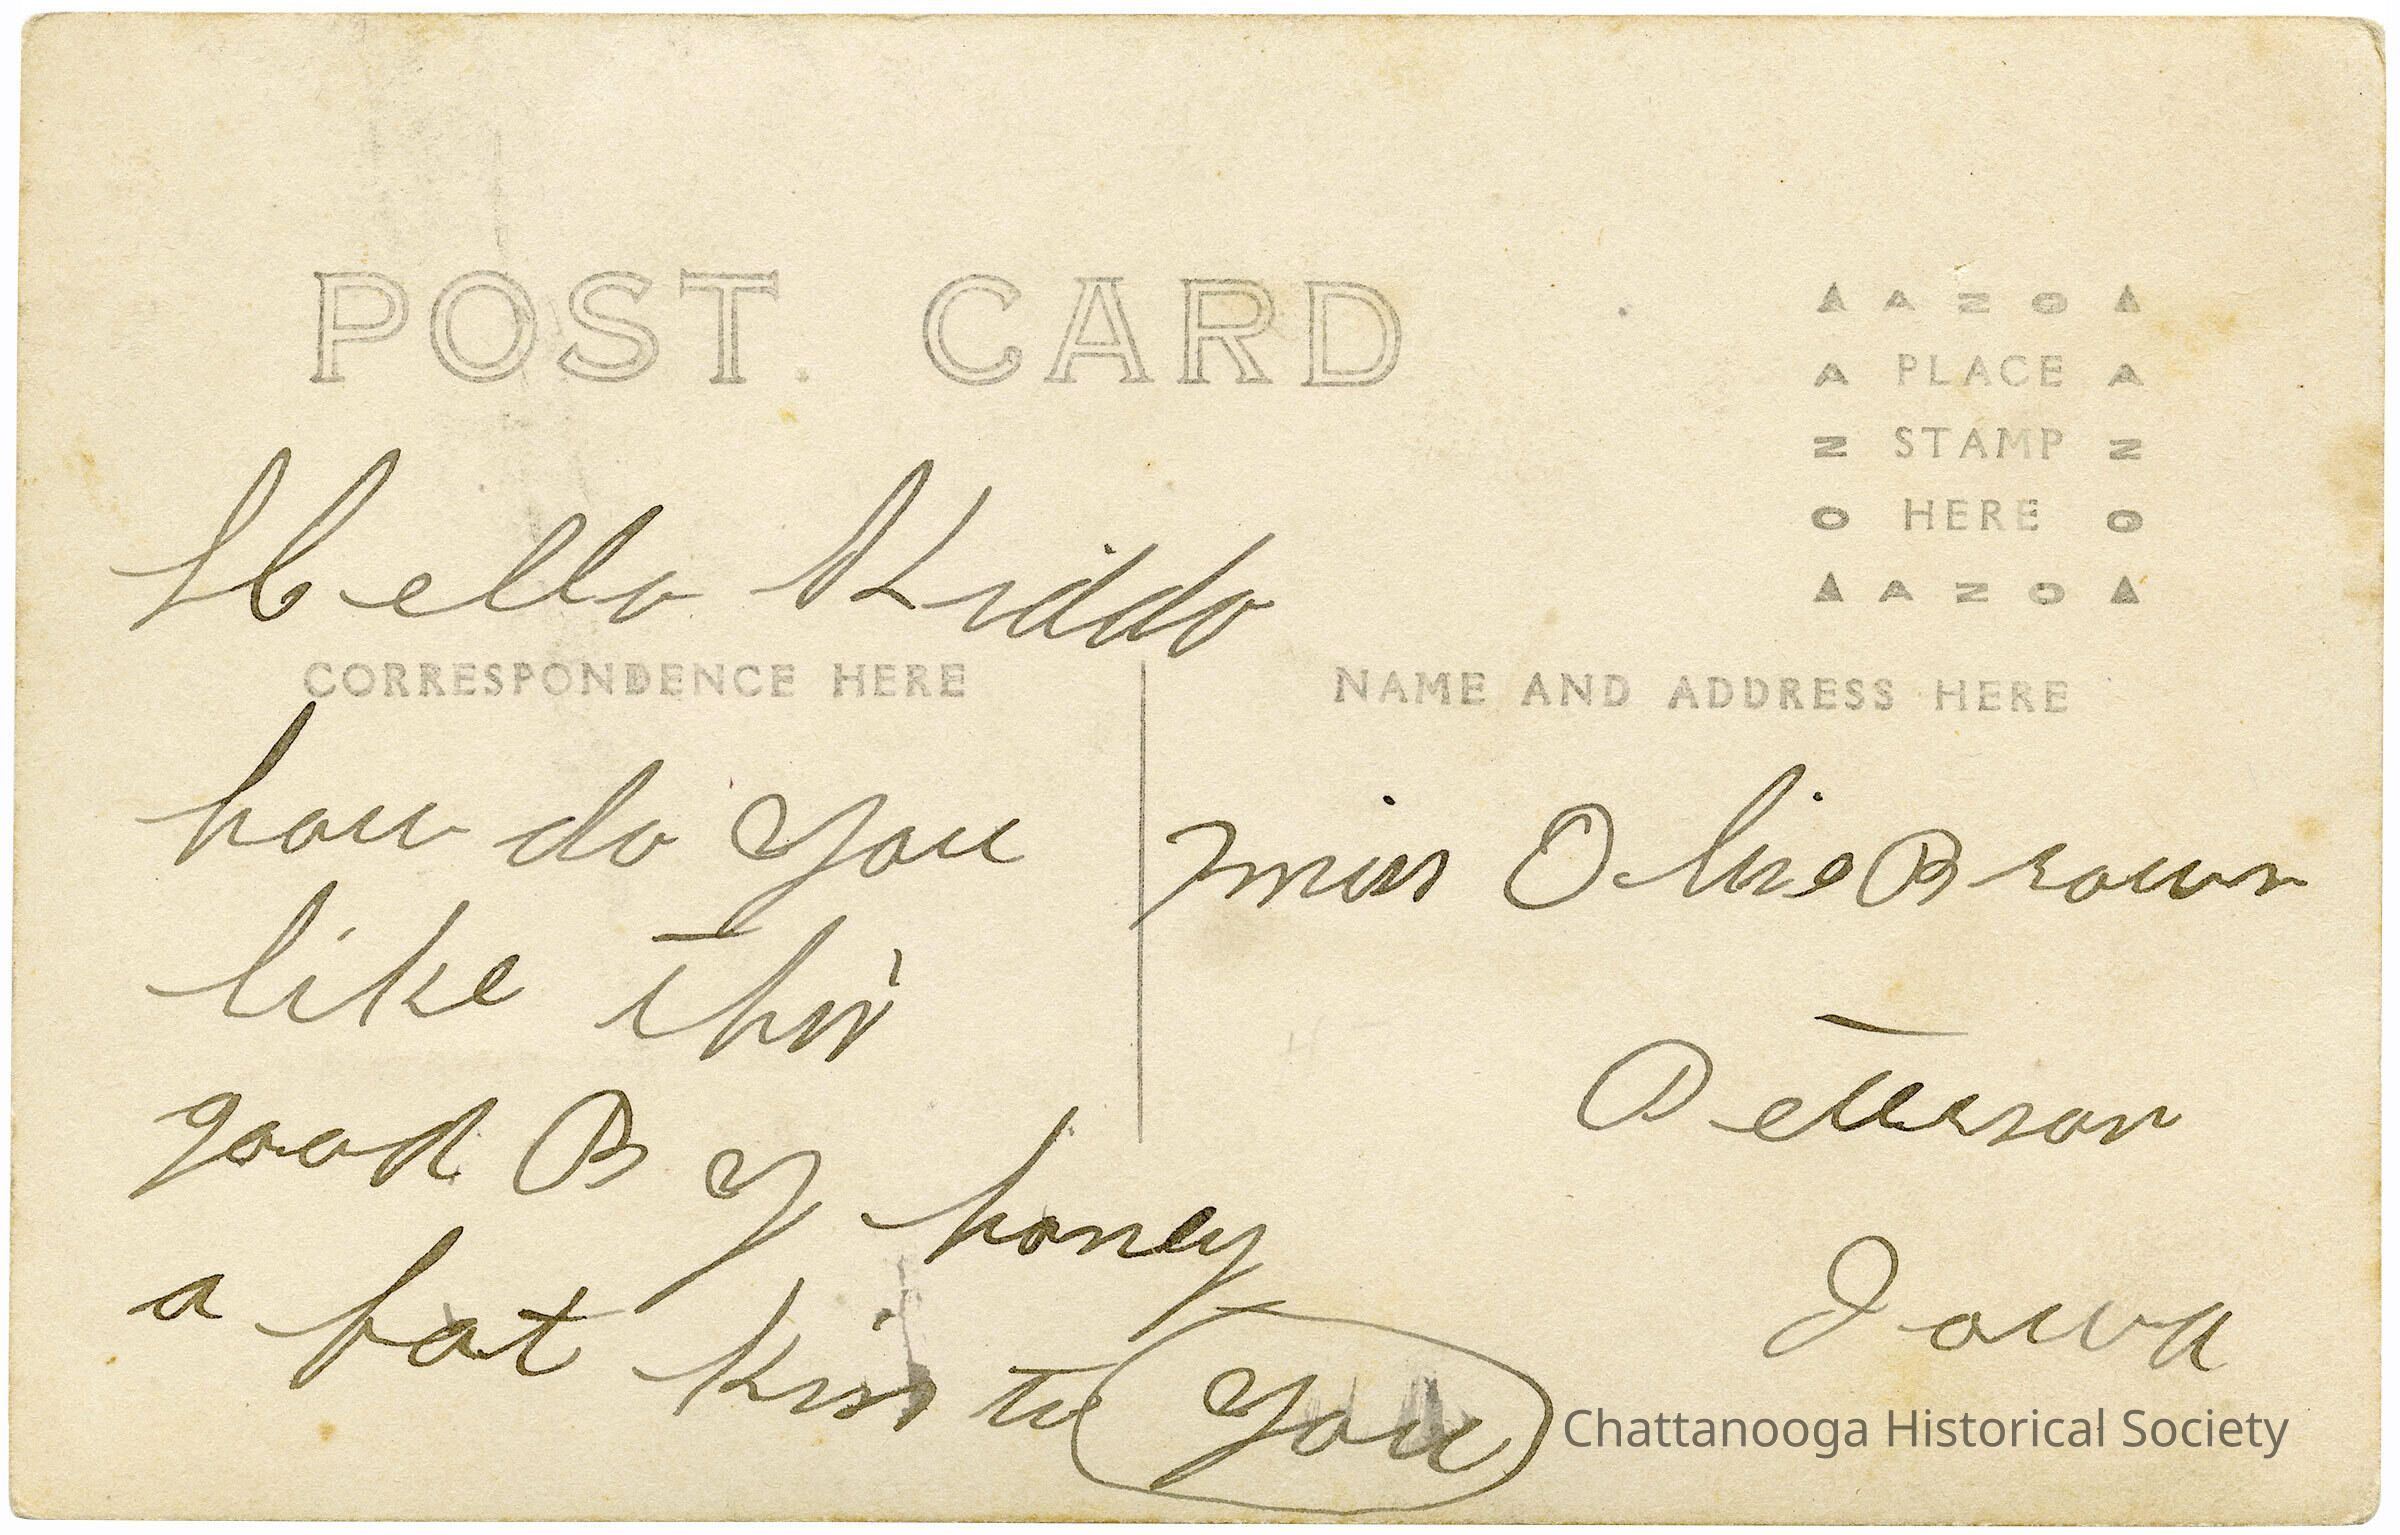 POST CARD
AZO
PLACE
STAMP
HERE
AZO
Hello Kiddo
CORRESPONDENCE HERE
how do you
like this
good By honey
a fat kiss to you
NAME AND ADDRESS HERE
miss Olive Brown
Petterson
Iowa
Chattanooga Historical Society